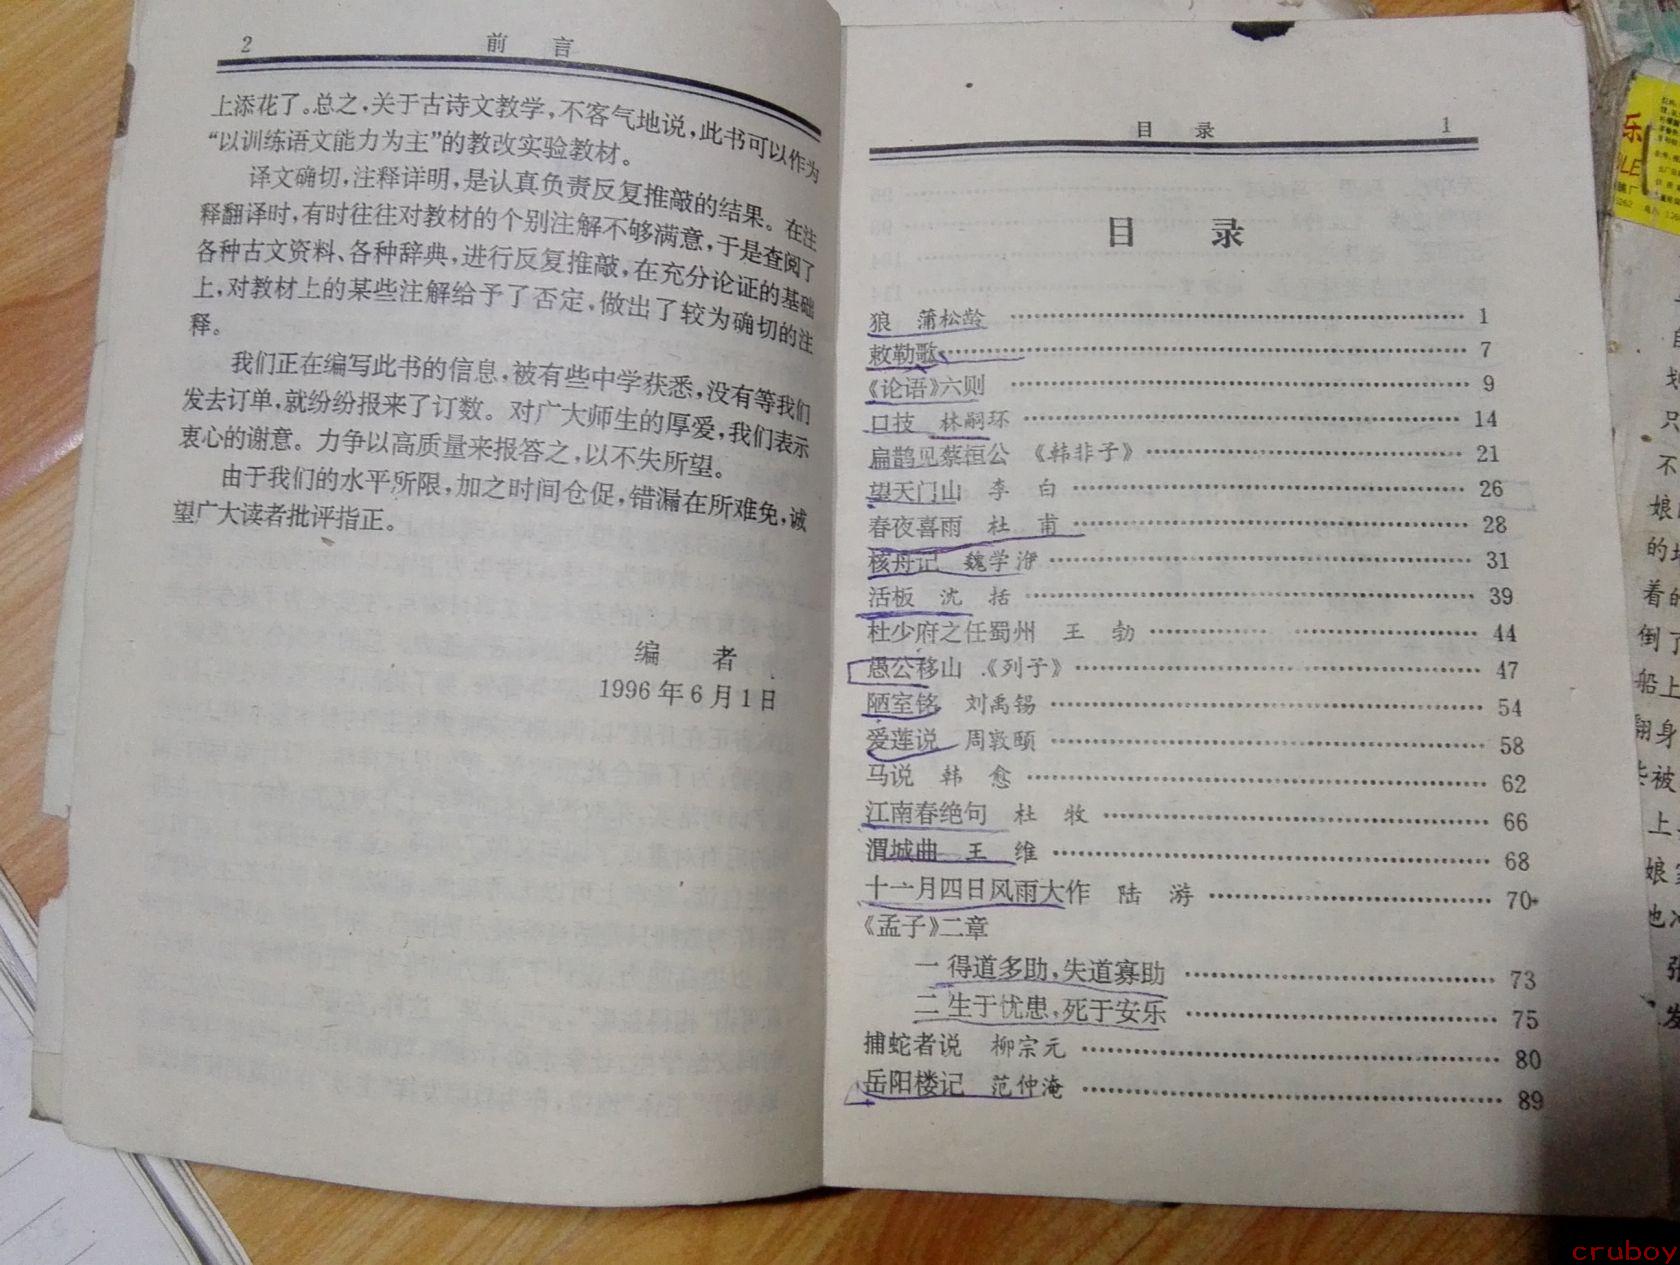 2 前 言
上添花了。总之,关于古诗文教学,不客气地说,此书可以作为
“以训练语文能力为主”的教改实验教材。
译文确切,注释详明,是认真负责反复推敲的结果。在注
释翻译时,有时往往对教材的个别注解不够满意,于是查阅了
各种古文资料、各种辞典,进行反复推敲,在充分论证的基础
上,对教材上的某些注解给予了否定,做出了较为确切的注
释。
我们正在编写此书的信息,被有些中学获悉,没有等我们
发去订单,就纷纷报来了订数。对广大师生的厚爱,我们表示
衷心的谢意。力争以高质量来报答之,以不失所望。
由于我们的水平所限,加之时间仓促,错漏在所难免,诚
望广大读者批评指正。
编 者
1996年6月1日
目 录 1
目 录
狼 蒲松龄 …… 1
敕勒歌 …… 7
《论语》六则 …… 9
口技 林嗣环 …… 14
扁鹊见蔡桓公 《韩非子》 …… 21
望天门山 李 白 …… 26
春夜喜雨 杜 甫 …… 28
核舟记 魏学洢 …… 31
活板 沈 括 …… 39
杜少府之任蜀州 王 勃 …… 44
愚公移山 《列子》 …… 47
陋室铭 刘禹锡 …… 54
爱莲说 周敦颐 …… 58
马说 韩 愈 …… 62
江南春绝句 杜 牧 …… 66
渭城曲 王 维 …… 68
十一月四日风雨大作 陆 游 …… 70
《孟子》二章
一 得道多助,失道寡助 …… 73
二 生于忧患,死于安乐 …… 75
捕蛇者说 柳宗元 …… 80
岳阳楼记 范仲淹 …… 89
乐
只
不
娘
的
着的
倒了
船上
翻身
被
上
娘
也
cruboy